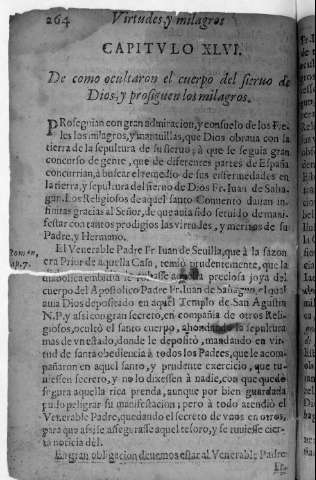 264 Virtudes, y milagros
CAPITVLO XLVI.
De como ocultaron el cuerpo del sieruo de
Dios, y prosiguen los milagros.
PRoseguian con grande admiracion, y consuelo de los Fie-
les los milagros, y marauillas, que Dios obraua con la
tierra de la sepultura de su sieruo; à que se seguia gran
concurso de gente, que de diferentes partes de España
concurrian, a buscar el remedio de sus enfermedades en
la tierra, y sepultura del sieruo de Dios Fr. Iuan de Saha-
gun. Los Religiosos de aquel santo Conuento dauan in-
finitas gracias al Señor, de que auia sido seruido de mani-
festar con tantos prodigios las virtudes, y meritos de su
Padre, y Hermano.
El Venerable Padre Fr. Iuan de Seuilla, que à la sazon
era Prior de aquella Casa, temiò prudentemente, que la
diabolica embidia preciosa joya del
cuerpo del Apostolico Padre Fr. Iuan de Sahagun, el qual
auia Dios depositado en aquel Templo de San Agustin
N.P. y assi con gran secreto, en compañia de otros Reli-
giosos, ocultò el santo cuerpo, ahondando la sepultura
mas de vn estado, donde le depositò, mandando en vir-
tud de santa obediencia à todos los Padres, que le acom-
pañaron en aquel santo, y prudente exercicio, que tu-
uiessen secreto, y no lo dixessen à nadie, con que quedò
segura aquella rica prenda, aunque por bien guardada
pudo peligrar su manifestacion; pero à todo atendiò el
Venerable Padre, quedando el secreto de vnos en otros,
para que assi se assegurasse aquel tesoro, y se tuuiesse cier-
ta noticia dèl.
En gran obligacion deuemos estar al Venerable Padre